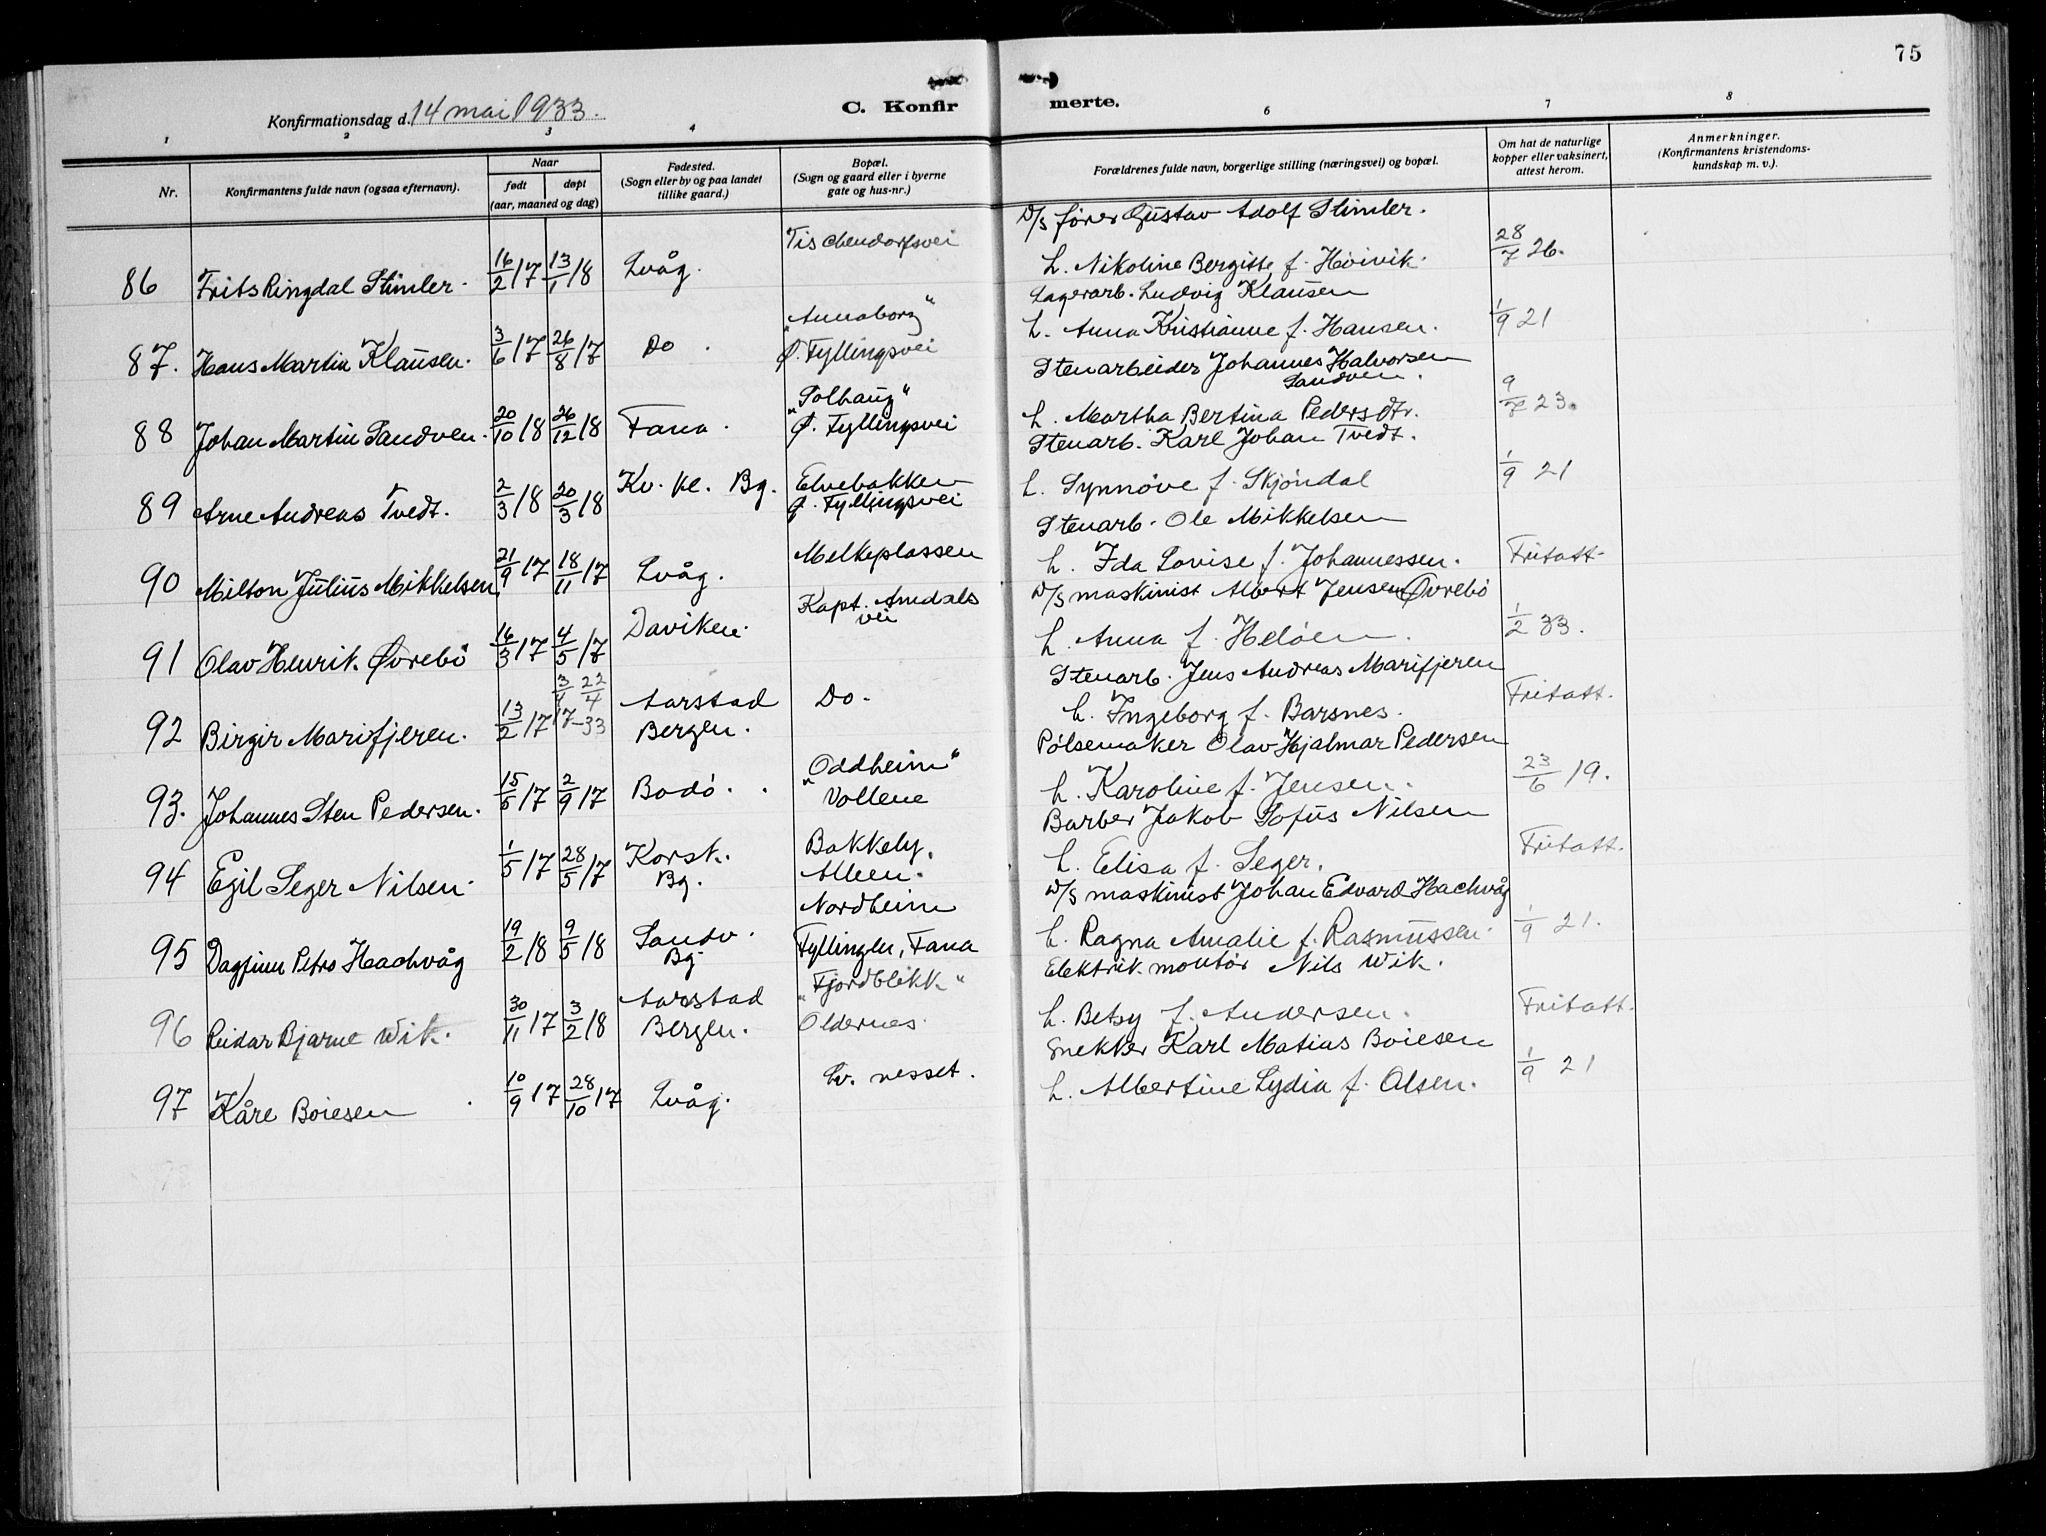 75
C. Konfir merte.
Konfirmationsdag d. 14 mai 1933.
1 2 3 4 6 7 8
Nr.
Konfirmantens fulde navn (ogsaa efternavn).
Naar
født døpt
(aar, maaned og dag)
Fødested.
(Sogn eller by og paa landet
tillike gaard.)
Bopæl.
(Sogn og gaard eller i byerne
gate og hus-nr.)
Forældrenes fulde navn, borgerlige stilling (næringsvei) og bopæl.
Om hat de naturlige
kopper eller vaksinert,
attest herom.
Anmerkninger.
(Konfirmantens kristendoms-
kundskap m. v.).
Tischendorfsvei D/S fører Gustav Adolf Stimler.
86 Frits Ringdal Stimler. 16/2 17 13/1 18 Lvåg. h. Nikoline Bergitte f. Høivik. 28/7 26.
"Annaborg" Lagerarb. Ludvig Klausen
87. Hans Martin Klausen. 3/6 17 26/8 17 Do. Ø. Fyllingsvei h. Anna Kristianne f. Hansen. 1/9 21
"Solhaug" Stenarbeider Johannes Halvorsen
Sandven.
88 Johan Martin Sandven. 20/10 18 26/12 18 Fana. Ø. Fyllingsvei h. Martha Bertina Pedersdtr. 9/7 23.
Elvebakken Stenarb. Karl Johan Tvedt.
89 Arne Andreas Tvedt. 2/3 18 20/3 18 Kv. kl. Bg. Ø. Fyllingsvei h. Synnøve f. Skjøndal 1/9 21
Stenarb. Ole Mikkelsen
90 Milton Julius Mikkelsen. 21/9 17 18/11 17 Lvåg. Melkeplassen h. Ida Lovise f. Johannessen. Fritatt.
Kapt. Amdals D/S maskinist Albert Jensen Øvrebö
91 Olav Henrik Øvrebö 16/3 17 4/5 17 Daviken. vei h. Anna f. Helöen. 1/2 33.
3/4 22/4 Aarstad Stenarb. Jens Andreas Marifjeren
92 Birgir Marifjeren. 13/2 17 17-33 Bergen. Do. h. Ingeborg f. Barsnes. Fritatt.
"Oddheim" Pölsemaker Olav Hjalmar Pedersen
93. Johannes Sten Pedersen. 15/5 17 2/9 17 Bodö. Vollene h. Karoline f. Jensen. 23/6 19.
Korsk. Bakkely. Barber Jakob Sofus Nilsen
94 Egil Seger Nilsen. 1/5 17 28/5 17 Bg. Alleen. h. Elisa f. Seger. Fritatt.
Nordheim D/S maskinist Johan Edvard Hachvåg
95 Dagfinn Petro Hachvåg 19/2 18 9/5 18 Sandv. Bg. Fyllingen, Fana h. Ragna Amalie f. Rasmussen. 1/9 21.
Aarstad "Fjordblikk" Elektrik. montör Nils Wik.
96 Reidar Bjarne Wik. 30/11 17 3/2 18 Bergen. Oldernes. h. Betsy f. Andersen. Fritatt.
Lv. nesset. Snekker Karl Matias Boiesen
97 Kåre Boiesen 10/9 17 28/10 17 Lvåg. h. Albertine Lydia f. Olsen. 1/9 21